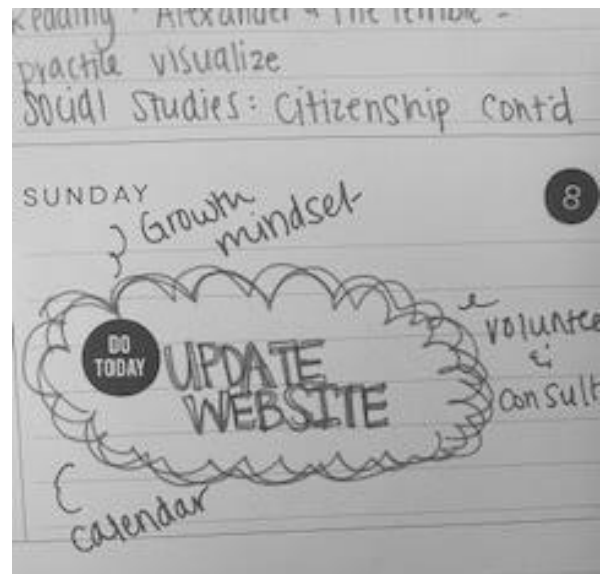 Reading · Alexander & The Terrible -
practice visualize
Social Studies: Citizenship cont'd
SUNDAY
8
Growth
mindset
DO
TODAY
UPDATE
WEBSITE
voluntee
&
consult
calendar